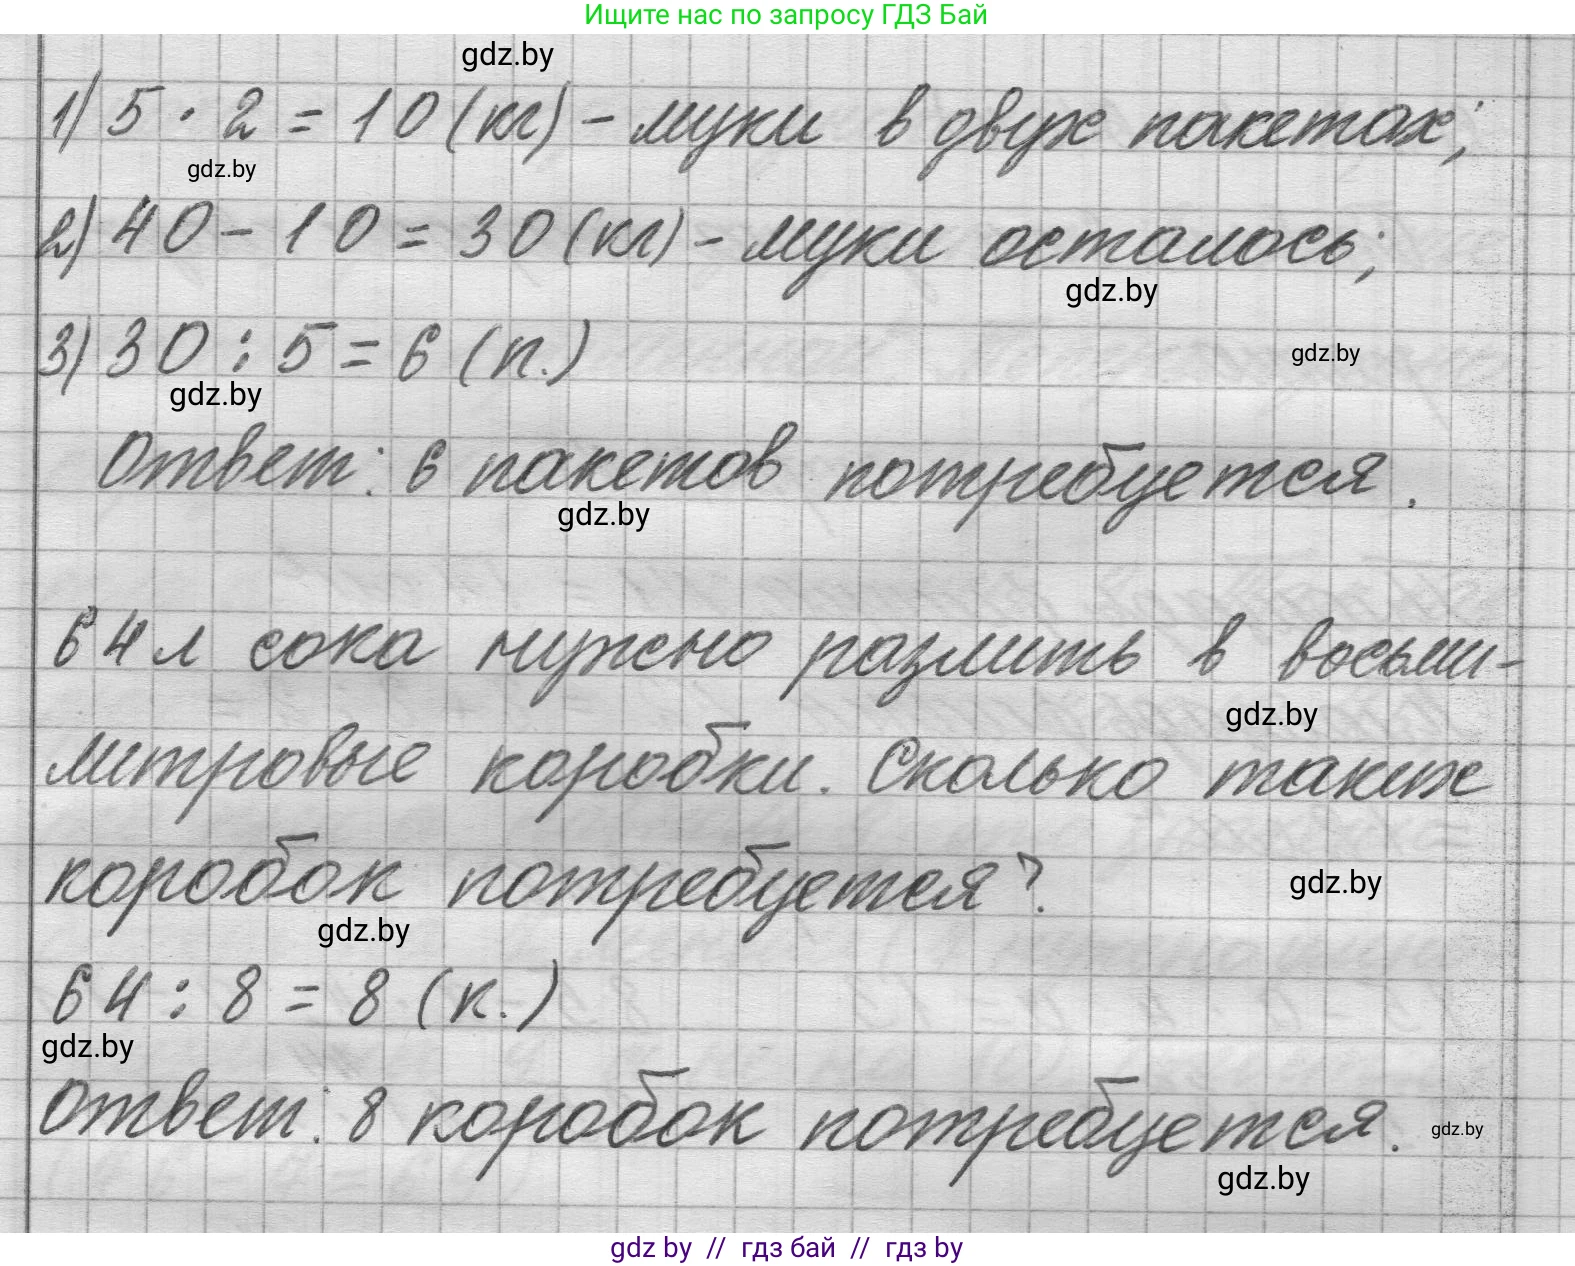 Ищите нас по запросу ГДЗ Бай
gdz.by
1) 5 · 2 = 10 (кг) - муки в двух пакетах;
gdz.by
2) 40 - 10 = 30 (кг) - муки осталось;
gdz.by
3) 30 : 5 = 6 (п.)
gdz.by
gdz.by
Ответ: 6 пакетов потребуется.
gdz.by
64 л сока нужно разлить в восьми-
gdz.by
литровые коробки. Сколько таких
коробок потребуется?
gdz.by
gdz.by
64 : 8 = 8 (к.)
gdz.by
Ответ: 8 коробок потребуется.
gdz.by
gdz.by
gdz by // гдз бай // гдз by